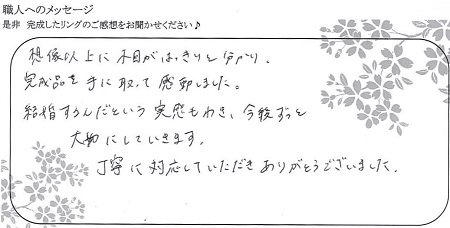 職人へのメッセージ
是非 完成したリングのご感想をお聞かせください♪
想像以上に木目がはっきりと分かり、
完成品を手に取って感動しました。
結婚するんだという実感もわき、今後ずっと
大切にしていきます。
丁寧に対応していただきありがとうございました。